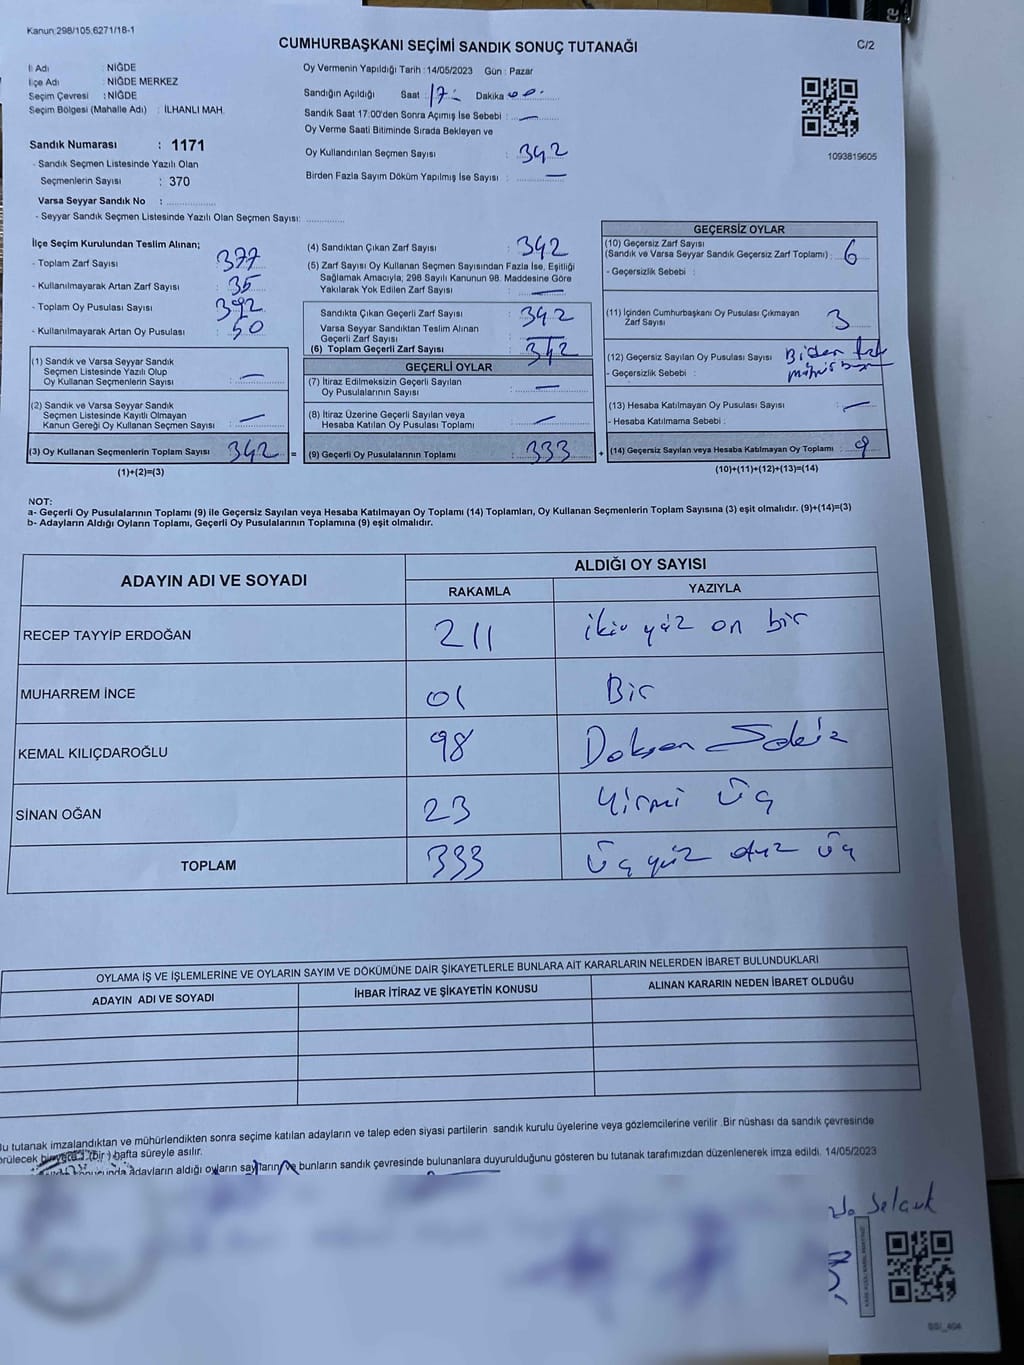 Kanun:298/105,6271/18-1
CUMHURBAŞKANI SEÇİMİ SANDIK SONUÇ TUTANAĞI
C/2
İl Adı : NİĞDE
İlçe Adı : NİĞDE MERKEZ
Seçim Çevresi : NİĞDE
Seçim Bölgesi (Mahalle Adı) : İLHANLI MAH.
Sandık Numarası : 1171
- Sandık Seçmen Listesinde Yazılı Olan
Seçmenlerin Sayısı : 370
Varsa Seyyar Sandık No :
- Seyyar Sandık Seçmen Listesinde Yazılı Olan Seçmen Sayısı:
Oy Vermenin Yapıldığı Tarih : 14/05/2023 Gün : Pazar
Sandığın Açıldığı Saat 17: Dakika 00.
Sandık Saat 17:00'den Sonra Açımış İse Sebebi : —
Oy Verme Saati Bitiminde Sırada Bekleyen ve
Oy Kullandırılan Seçmen Sayısı : 342
Birden Fazla Sayım Döküm Yapılmış İse Sayısı : —
1093819605
İlçe Seçim Kurulundan Teslim Alınan;
- Toplam Zarf Sayısı : 377
- Kullanılmayarak Artan Zarf Sayısı : 35
- Toplam Oy Pusulası Sayısı : 392
- Kullanılmayarak Artan Oy Pusulası : 50
(1) Sandık ve Varsa Seyyar Sandık
Seçmen Listesinde Yazılı Olup
Oy Kullanan Seçmenlerin Sayısı : —
(2) Sandık ve Varsa Seyyar Sandık
Seçmen Listesinde Kayıtlı Olmayan
Kanun Gereği Oy Kullanan Seçmen Sayısı : —
(3) Oy Kullanan Seçmenlerin Toplam Sayısı : 342 =
(1)+(2)=(3)
(4) Sandıktan Çıkan Zarf Sayısı : 342
(5) Zarf Sayısı Oy Kullanan Seçmen Sayısından Fazla İse, Eşitliği
Sağlamak Amacıyla; 298 Sayılı Kanunun 98. Maddesine Göre
Yakılarak Yok Edilen Zarf Sayısı : —
Sandıkta Çıkan Geçerli Zarf Sayısı : 342
Varsa Seyyar Sandıktan Teslim Alınan
Geçerli Zarf Sayısı : —
(6) Toplam Geçerli Zarf Sayısı : 342
GEÇERLİ OYLAR
(7) İtiraz Edilmeksizin Geçerli Sayılan
Oy Pusulasının Sayısı : —
(8) İtiraz Üzerine Geçerli Sayılan veya
Hesaba Katılan Oy Pusulası Toplamı : —
(9) Geçerli Oy Pusulalarının Toplamı : 333 +
GEÇERSİZ OYLAR
(10) Geçersiz Zarf Sayısı
(Sandık ve Varsa Seyyar Sandık Geçersiz Zarf Toplamı) : 6
- Geçersizlik Sebebi :
(11) İçinden Cumhurbaşkanı Oy Pusulası Çıkmayan
Zarf Sayısı : 3
(12) Geçersiz Sayılan Oy Pusulası Sayısı : Birden
- Geçersizlik Sebebi :
(13) Hesaba Katılmayan Oy Pusulası Sayısı : —
- Hesaba Katılmama Sebebi :
(14) Geçersiz Sayılan veya Hesaba Katılmayan Oy Toplamı : 9
(10)+(11)+(12)+(13)=(14)
NOT:
a- Geçerli Oy Pusulalarının Toplamı (9) ile Geçersiz Sayılan veya Hesaba Katılmayan Oy Toplamı (14) Toplamları, Oy Kullanan Seçmenlerin Toplam Sayısına (3) eşit olmalıdır. (9)+(14)=(3)
b- Adayların Aldığı Oyların Toplamı, Geçerli Oy Pusulalarının Toplamına (9) eşit olmalıdır.
ADAYIN ADI VE SOYADI
ALDIĞI OY SAYISI
RAKAMLA YAZIYLA
RECEP TAYYİP ERDOĞAN 211 iki yüz on bir
MUHARREM İNCE 01 Bir
KEMAL KILIÇDAROĞLU 98 Doksan Sekiz
SİNAN OĞAN 23 Yirmi üç
TOPLAM 333 üç yüz otuz üç
OYLAMA İŞ VE İŞLEMLERİNE VE OYLARIN SAYIM VE DÖKÜMÜNE DAİR ŞİKAYETLERLE BUNLARA AİT KARARLARIN NELERDEN İBARET BULUNDUKLARI
ADAYIN ADI VE SOYADI İHBAR İTİRAZ VE ŞİKAYETİN KONUSU ALINAN KARARIN NEDEN İBARET OLDUĞU
Bu tutanak imzalandıktan ve mühürlendikten sonra seçime katılan adayların ve talep eden siyasi partilerin sandık kurulu üyelerine veya gözlemcilerine verilir .Bir nüshası da sandık çevresinde
görülecek bir yere 1 (bir ) hafta süreyle asılır.
adayların aldığı oyların sayılarını ve bunların sandık çevresinde bulunanlara duyurulduğunu gösteren bu tutanak tarafımızdan düzenlenerek imza edildi. 14/05/2023
Selçuk
SSI_404